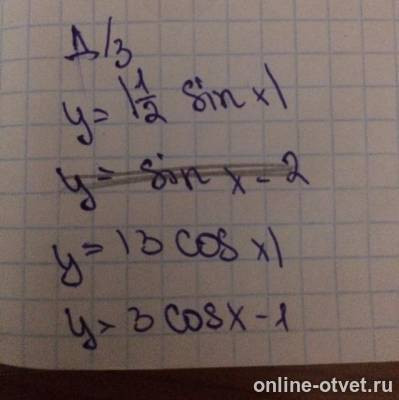 Д/З
y = |1/2 sin x|
y = sin x - 2
y = |3 cos x|
y = 3 cos x - 1
online-otvet.ru